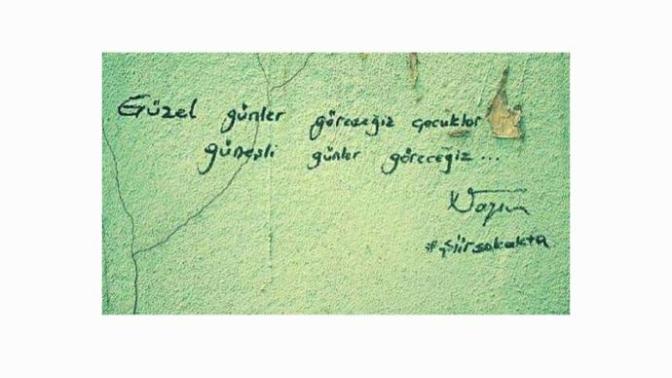 Güzel günler göreceğiz çocuklar
güneşli günler göreceğiz...
Nazım
#şiirsokakta